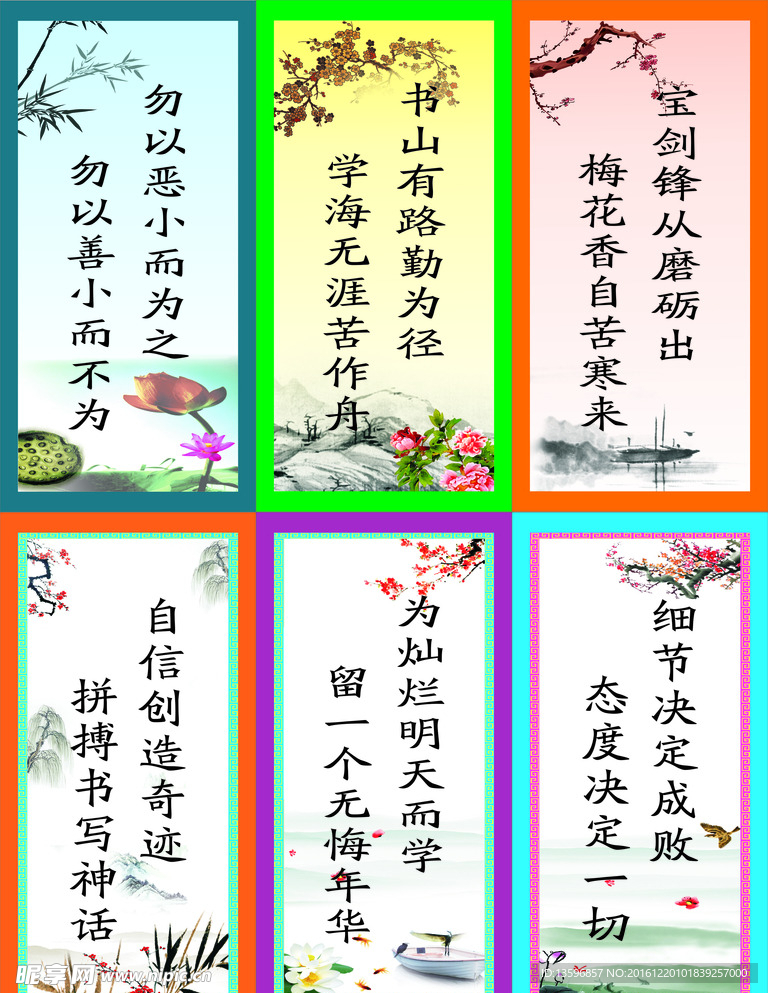 勿以恶小而为之
勿以善小而不为
书山有路勤为径
学海无涯苦作舟
宝剑锋从磨砺出
梅花香自苦寒来
自信创造奇迹
拼搏书写神话
为灿烂明天而学
留一个无悔年华
细节决定成败
态度决定一切
昵享网 www.nipic.cn
ID:13596857 NO:20161220101839257000